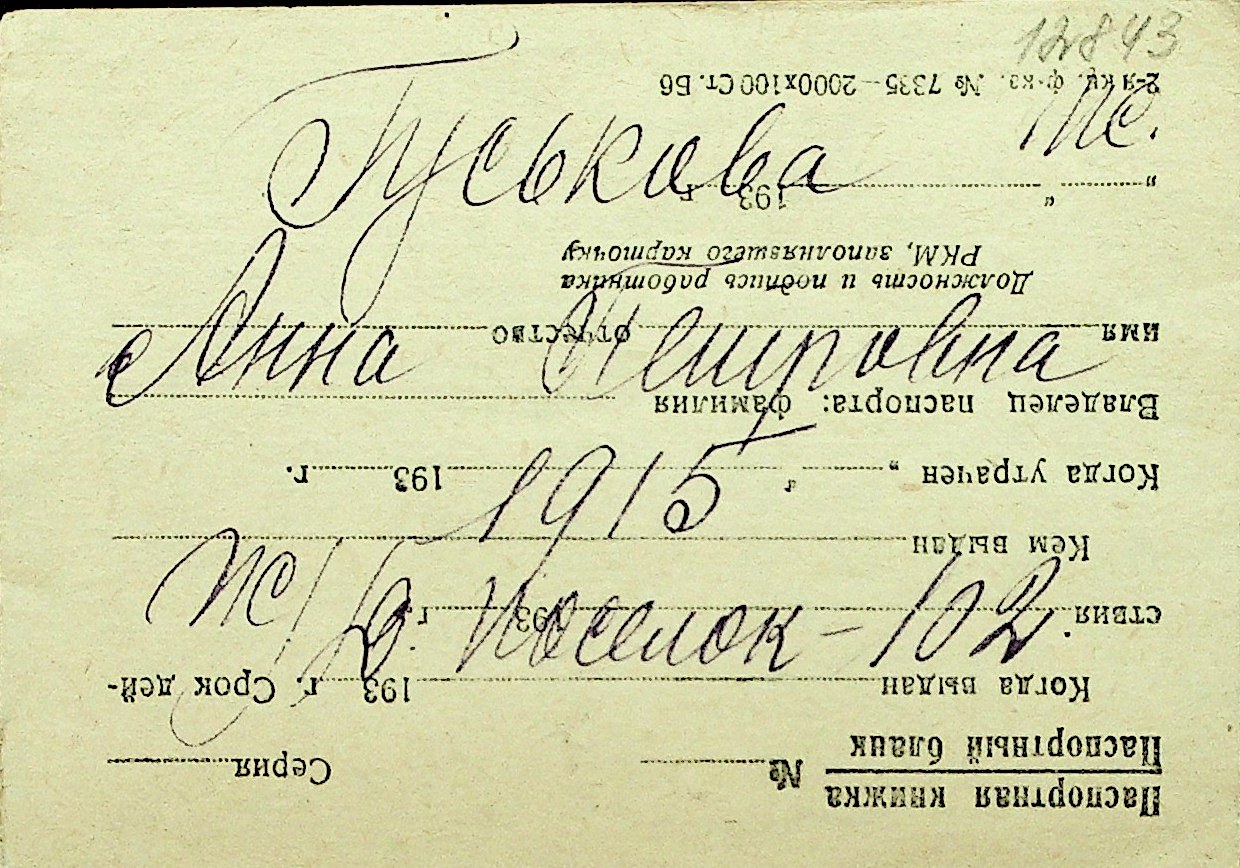 12843
Гуськова
Анна Петровна
1915
Ж/Б. Поселок – 102.
Паспортная книжка
Паспортный бланк
№ Серия
Когда выдан 193 г. Срок дей-
ствия 193 г.
Кем выдан
Когда утрачен „ “ 193 г.
Владелец паспорта: фамилия
имя отчество
Должность и подпись работника
РКМ, заполнявшего карточку
„ “ 193 г.
2-я ф-ка. № 7335—2000х100 Ст. Б6